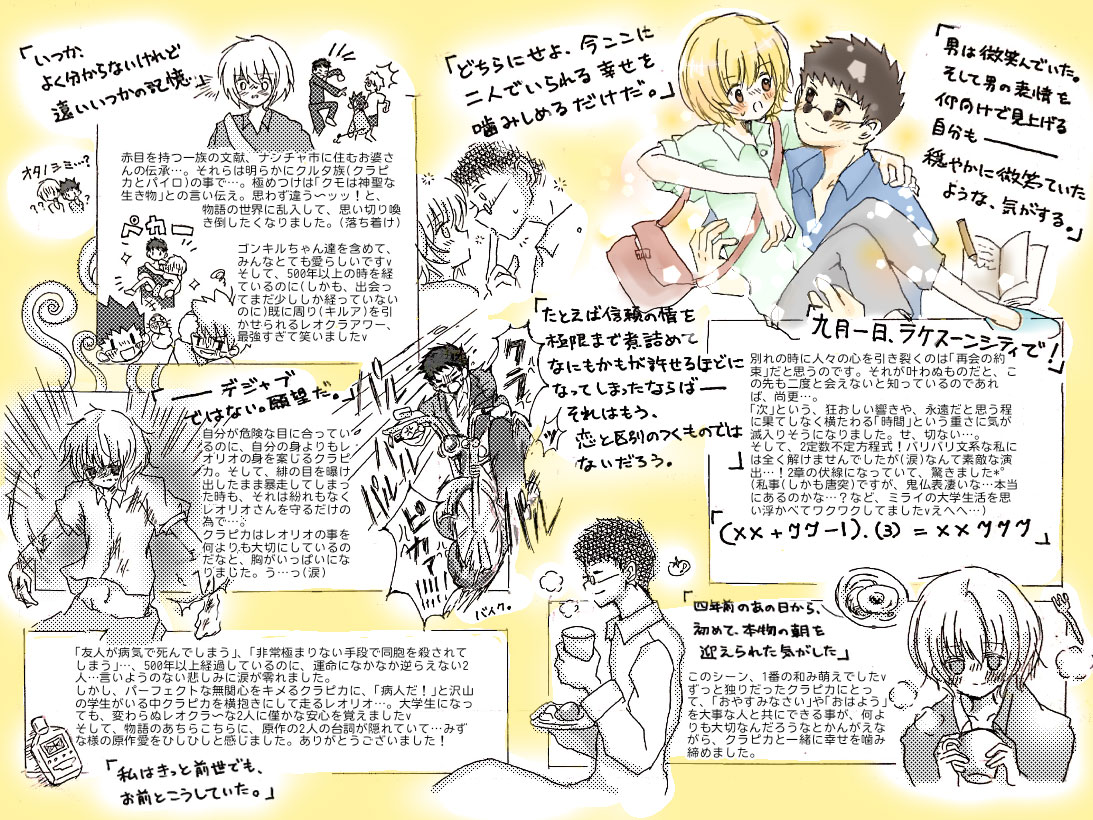 「いつか、
よく分からないけれど
遠いいつかの記憶」
オタノシミ…?
??
??
赤目を持つ一族の文献、ナンチャ市に住むお婆さ
んの伝承…。それらは明らかにクルタ族(クラピ
カとパイロ)の事で…。極めつけは「クモは神聖な
生き物」との言い伝え。思わず違う〜ッッ!と、
物語の世界に乱入して、思い切り喚
き倒したくなりました。(落ち着け)
ペカー
ゴンキルちゃん達を含めて、
みんなとても愛らしいですv
そして、500年以上の時を経
ているのに(しかも、出会っ
てまだ少ししか経っていない
のに)既に周り(キルア)を引
かせられるレオクラアワー、
最強すぎて笑いましたv
「どちらにせよ、今ここに
二人でいられる幸せを
噛みしめるだけだ。」
「男は微笑んでいた。
そして男の表情を
仰向けで見上げる
自分も――
穏やかに微笑っていた
ような、気がする。」
「たとえば信頼の情を
極限まで煮詰めて
なにもかもが許せるほどに
なってしまったならば―
それはもう、
恋と区別のつくものでは
ないだろう。
」
「九月一日、ラケスーンシティで!」
別れの時に人々の心を引き裂くのは「再会の約
束」だと思うのです。それが叶わぬものだと、こ
の先も二度と会えないと知っているのであれ
ば、尚更…。
「次」という、狂おしい響きや、永遠だと思う程
に果てしなく横たわる「時間」という重さに気が
滅入りそうになりました。せ、切ない…。
そして、2定数不定方程式!バリバリ文系な私に
は全く解けませんでしたが(涙)なんて素敵な演
出…!2章の伏線になっていて、驚きました*°
(私事(しかも唐突)ですが、鬼仏表凄いな…本当
にあるのかな…?など、ミライの大学生活を思
い浮かべてワクワクしてましたvえへへ…)
「(××+77-1).(3)=××777」
「――デジャブ
ではない。願望だ。」
自分が危険な目に合ってい
るのに、自分の身よりもレ
オリオの身を案じるクラピ
カ。そして、緋の目を曝け
出したまま暴走してしまっ
た時も、それは紛れもなく
レオリオさんを守るだけの
為で…。
クラピカはレオリオの事を
何よりも大切にしているの
だなと、胸がいっぱいにな
りました。う…っ(涙)
バイク。
「四年前のあの日から、
初めて、本物の朝を
迎えられた気がした」
このシーン、1番の和み萌えでしたv
ずっと独りだったクラピカにとっ
て、「おやすみなさい」や「おはよう」
を大事な人と共にできる事が、何よ
りも大切なんだろうなとかんがえな
がら、クラピカと一緒に幸せを噛み
締めました。
「友人が病気で死んでしまう」、「非常極まりない手段で同胞を殺されて
しまう」…、500年以上経過しているのに、運命になかなか逆らえない2
人…言いようのない悲しみに涙が零れました。
しかし、パーフェクトな無関心をキメるクラピカに、「病人だ!」と沢山
の学生がいる中クラピカを横抱きにして走るレオリオ…。大学生になっ
ても、変わらぬレオクラ〜な2人に僅かな安心を覚えましたv
そして、物語のあちらこちらに、原作の2人の台詞が隠れていて…みず
な様の原作愛をひしひしと感じました。ありがとうございました!
「私はきっと前世でも、
お前とこうしていた。」